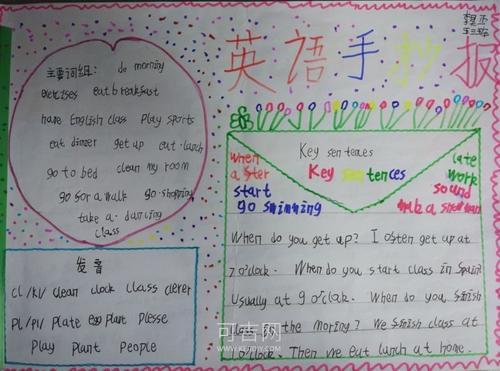 英语手抄报
主要词组: do morning
exercises eat breakfast
have English class play sports
eat dinner get up eat lunch
go to bed clean my room
go for a walk go shopping
take a dancing
class
发音
cl /kl/ clean clock class clever
pl /pl/ plate eggplant plesse
play plant people
Key sentences
Key sentences
when
after
start
go swimming
late
work
sound
When do you get up? I often get up at
7 o'clock. When do you start class in Spain?
Usually at 9 o'clock. When do you finish
class in the moring? We finish class at
1 o'clock. Then we eat lunch at home.
可吉网